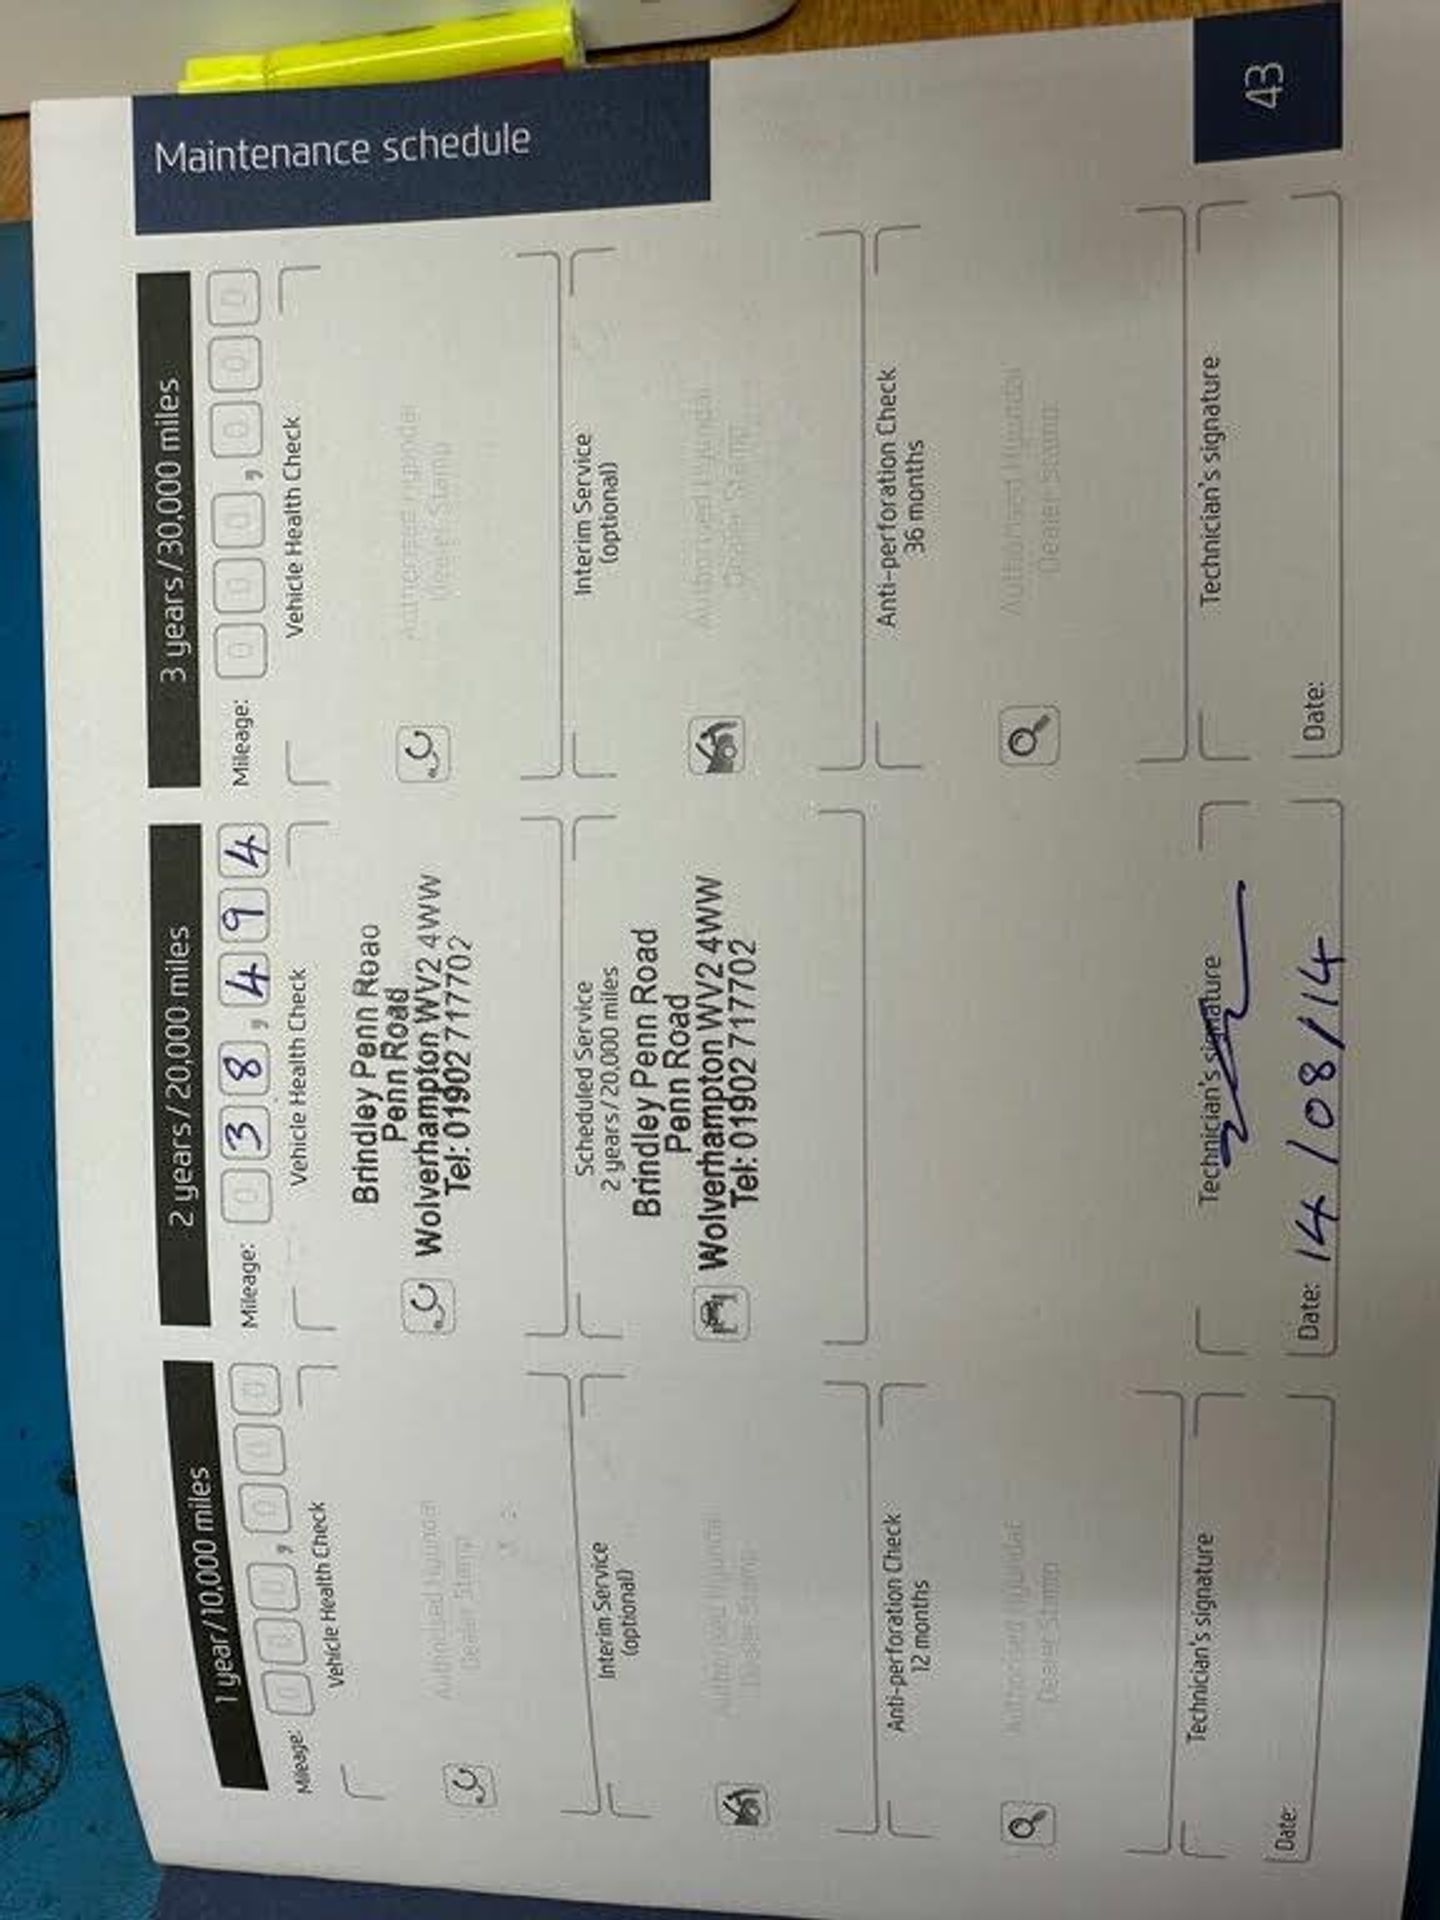 Maintenance schedule
1 year/10,000 miles
Mileage: 0 0 0 , 0 0 0
Vehicle Health Check
Authorised Hyundai
Dealer Stamp
Interim Service
(optional)
Authorised Hyundai
Dealer Stamp
Anti-perforation Check
12 months
Authorised Hyundai
Dealer Stamp
Technician's signature
Date:
2 years/20,000 miles
Mileage: 0 3 8 , 4 9 4
Vehicle Health Check
Brindley Penn Road
Penn Road
Wolverhampton WV2 4WW
Tel: 01902 717702
Scheduled Service
2 years/20,000 miles
Brindley Penn Road
Penn Road
Wolverhampton WV2 4WW
Tel: 01902 717702
Technician's signature
Date: 14/08/14
3 years/30,000 miles
Mileage: 0 0 0 , 0 0 0
Vehicle Health Check
Authorised Hyundai
Dealer Stamp
Interim Service
(optional)
Authorised Hyundai
Dealer Stamp
Anti-perforation Check
36 months
Authorised Hyundai
Dealer Stamp
Technician's signature
Date:
43